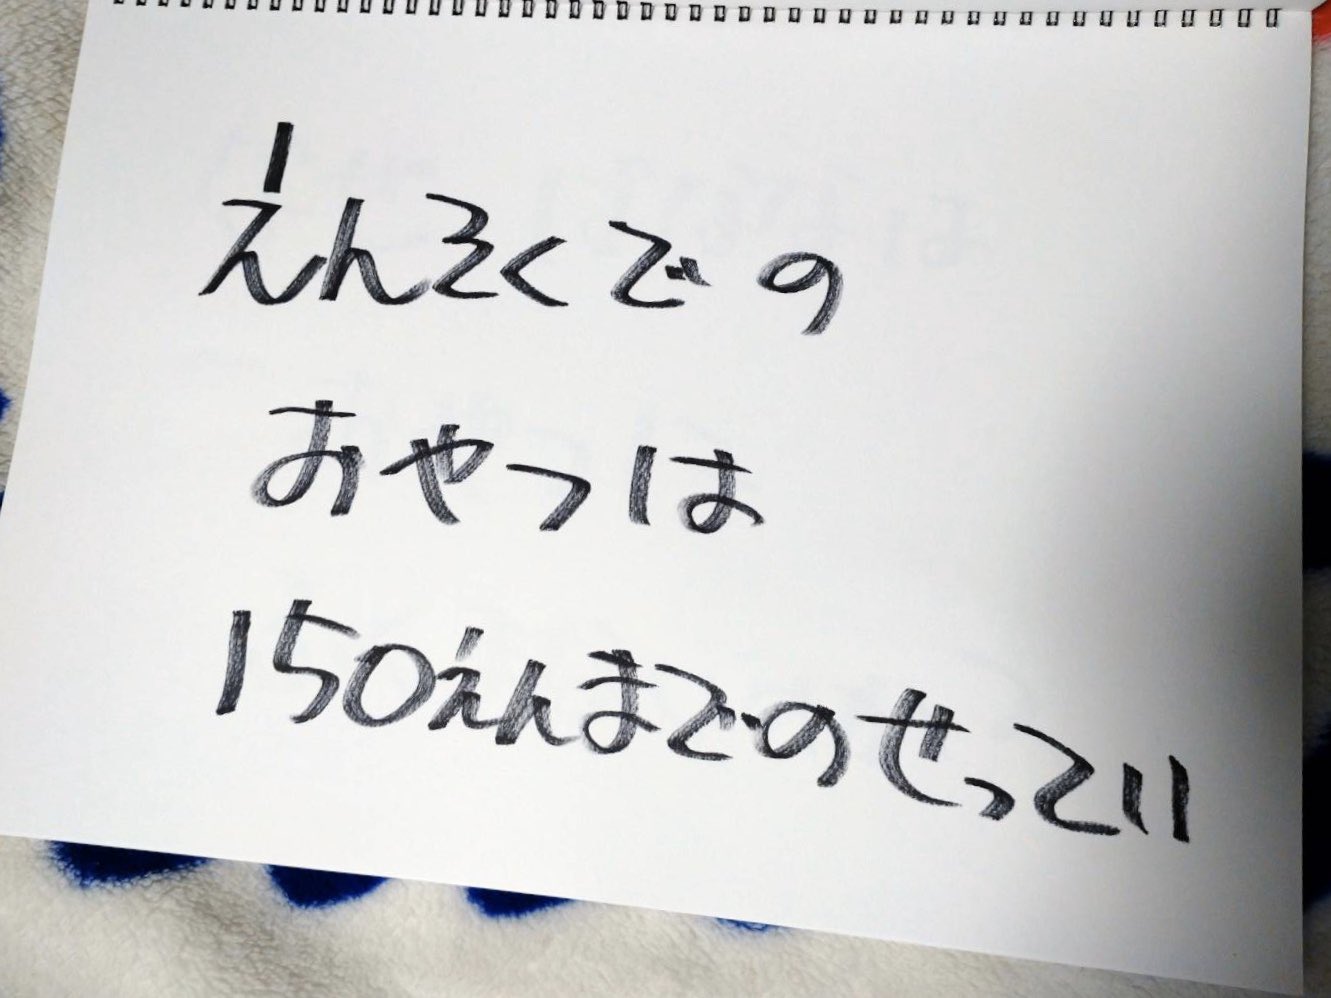 えんそくでの
おやつは
150えんまでのせってい